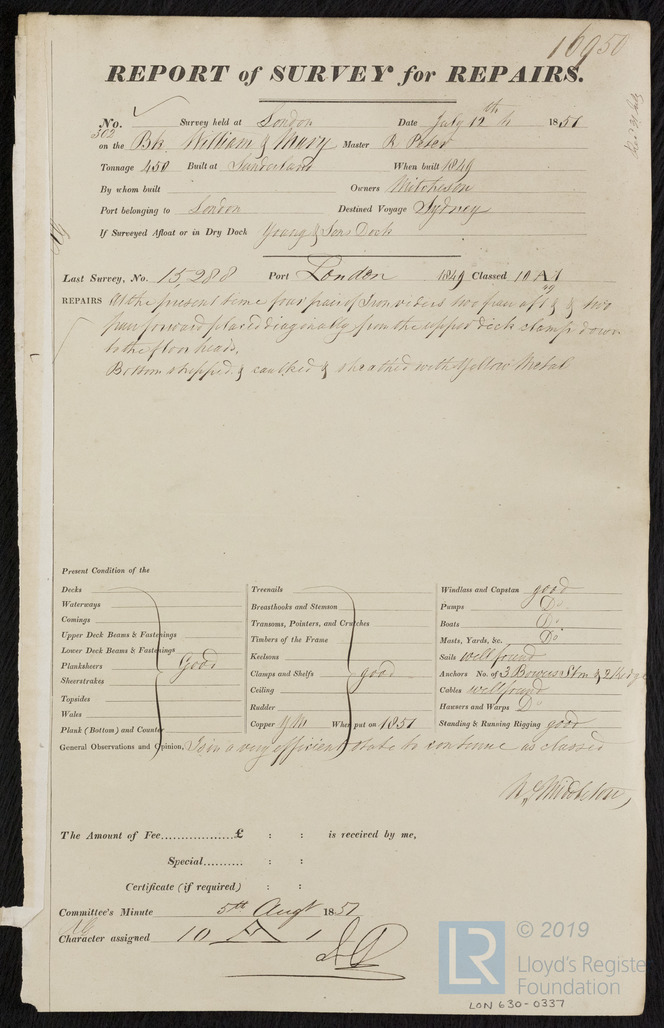 16950
REPORT of SURVEY for REPAIRS.
No. 302 Survey held at London Date July 12th 1851
on the Bk William & Mary Master R Peter
Tonnage 450 Built at Sunderland When built 1849
By whom built Owners Mitcheson
Port belonging to London Destined Voyage Sydney
If Surveyed Afloat or in Dry Dock Young & Sons Dock
Last Survey, No. 15,288 Port London 1849 Classed 10 A 1
REPAIRS At the present time four pair of Iron riders two pair aft & two
pair forward placed diagonally from the upper deck clamp down
to the floor heads.
Bottom stripped & caulked & sheathed with Yellow Metal
Present Condition of the
Decks
Waterways
Comings
Upper Deck Beams & Fastenings
Lower Deck Beams & Fastenings
Planksheers Good
Sheerstrakes
Topsides
Wales
Plank (Bottom) and Counter
Treenails
Breasthooks and Stemson
Transoms, Pointers, and Crutches
Timbers of the Frame
Keelsons
Clamps and Shelfs good
Ceiling
Rudder
Copper Y M When put on 1851
Windlass and Capstan good
Pumps Do
Boats Do
Masts, Yards, &c. Do
Sails well found
Anchors No. of 3 Bowers 1 Stm & 2 Kedge
Cables well found
Hawsers and Warps Do
Standing & Running Rigging good
General Observations and Opinion. Is in a very efficient state to continue as classed
Middleton
The Amount of Fee.................£ : : is received by me,
Special.......... : :
Certificate (if required) : :
Committee's Minute 5th Augt 1851
Character assigned 10 A 1
LR © 2019
Lloyd's Register
Foundation
LON 630-0337